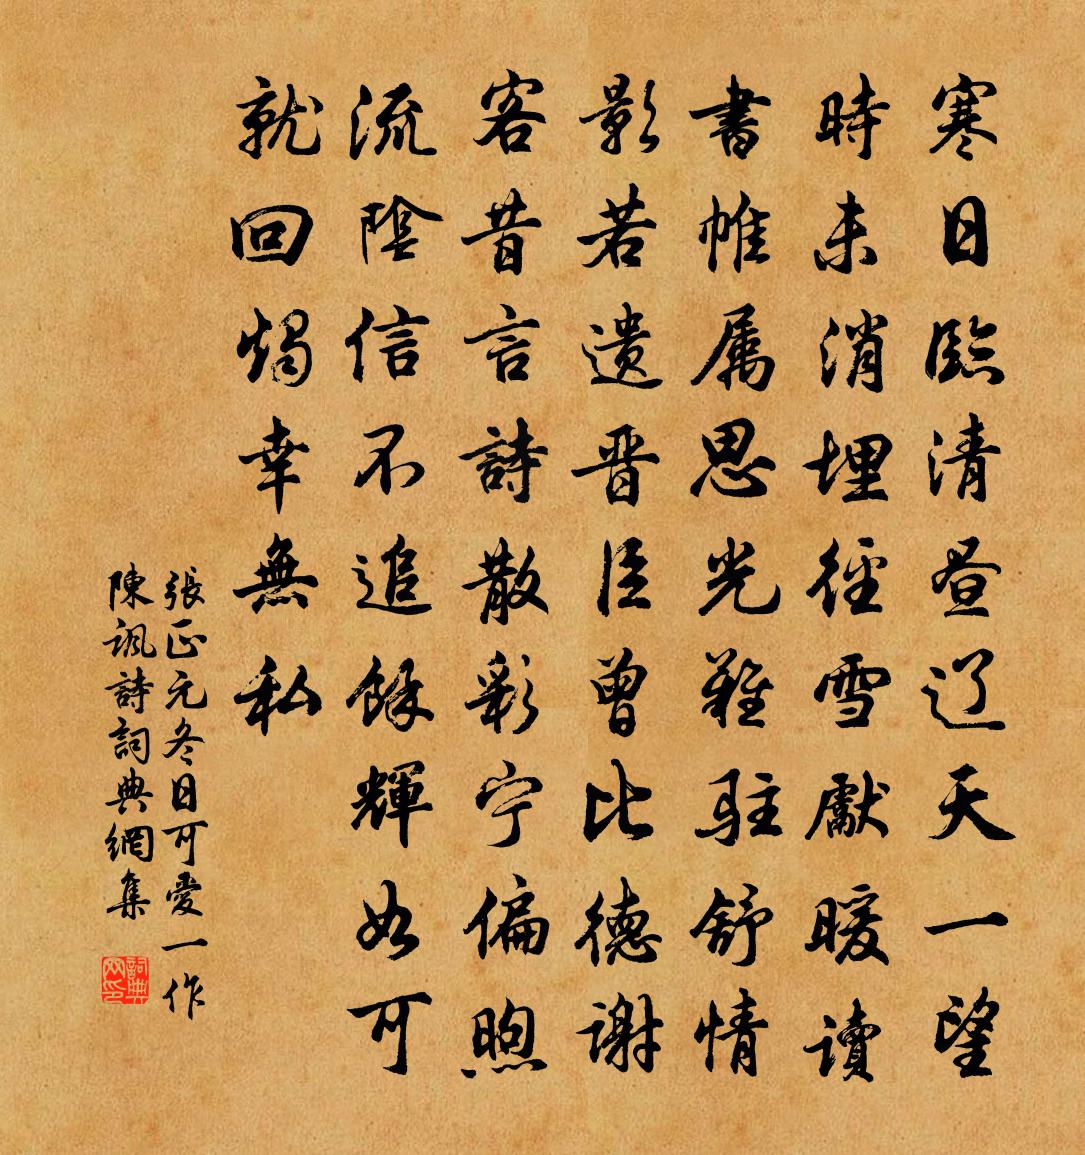 寒日臨清昼辽天一望
時未消埋徑雪獻暖讀
書帷属思光難駐舒情
影若遺晋臣曾比德谢
客昔言詩散彩宁偏煦
流陰信不追餘輝如可
就回燭幸無私
張正元冬日可愛一作
陳諷詩詞典網集
詞典网印